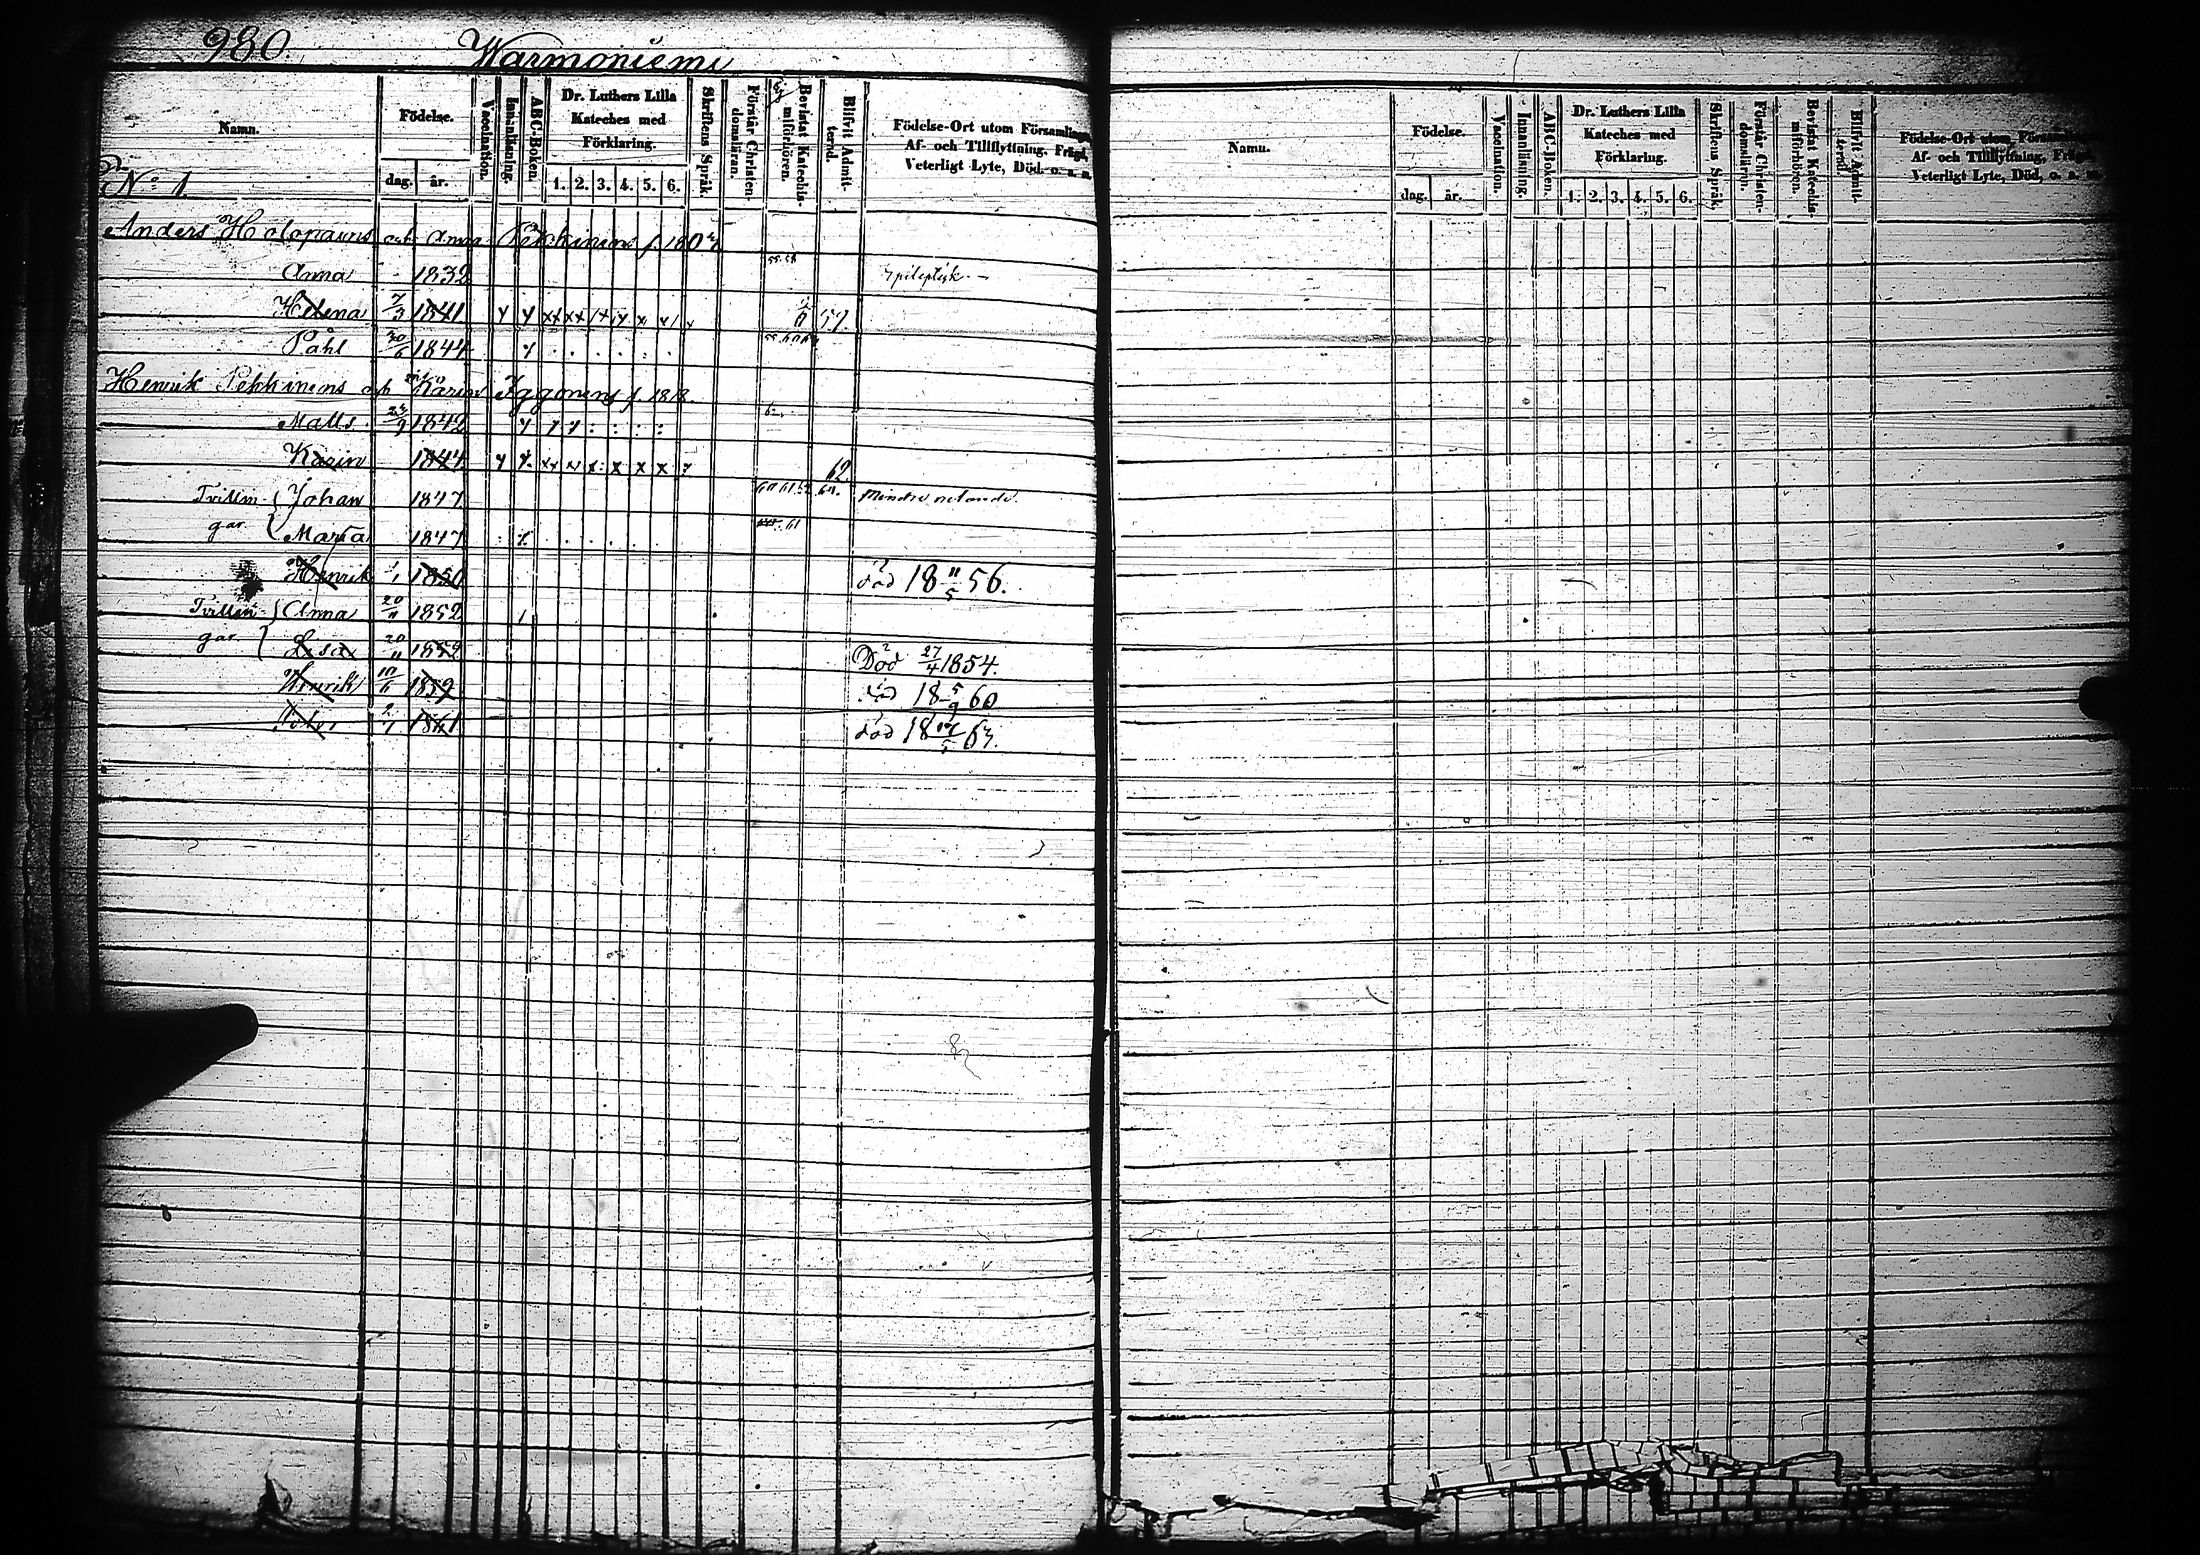 980. Warmoniemi
Namn. Födelse. dag. år. Vaccination. Innanläsning. ABC-Boken. Dr. Luthers Lilla Kateches med Förklaring. 1. 2. 3. 4. 5. 6. Skriftens Språk. Förstår Christendomsläran. Bevistat Katechismiförhören. Blifvit Admitterad. Födelse-Ort utom Församlingen, Af- och Tillflyttning, Frägd, Veterligt Lyte, Död, o. s. v.
No 1.
Anders Holopainens och Anna Pekkinens f. 1807
Anna 1832 55.58
Helena 7/3 1841 59.
Påhl 30/6 1844
Henrik Pekkinens och Karin Iggonens f. 1818.
Matts 24/9 1842
Karin 1844 62
Tvillin- Johan 1847 60 61 Mindre vetande.
gar. Maria 1847 61
Henrik 1/1 1850 död 18 11/5 56.
Tvillin- Anna 20/11 1852
gar. Lisa 20/11 1852 Död 27/4 1854.
Henrik 10/6 1859 död 18 5/9 60
1861 död 18 /5 63.
Namn. Födelse. dag. år. Vaccination. Innanläsning. ABC-Boken. Dr. Luthers Lilla Kateches med Förklaring. 1. 2. 3. 4. 5. 6. Skriftens Språk. Förstår Christendomslärun. Bevistat Katechismiförhören. Blifvit Admitterd. Födelse-Ort utom Församlingen, Af- och Tillflyttning, Frägd, Veterligt Lyte, Död, o. s. v.